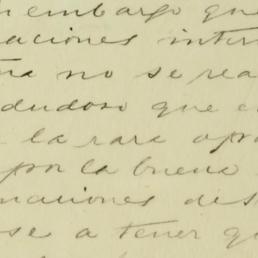 embargo que
aciones inter
no se rea
dudoso que e
la rara apro
por la buena
naciones des
se a tener qu